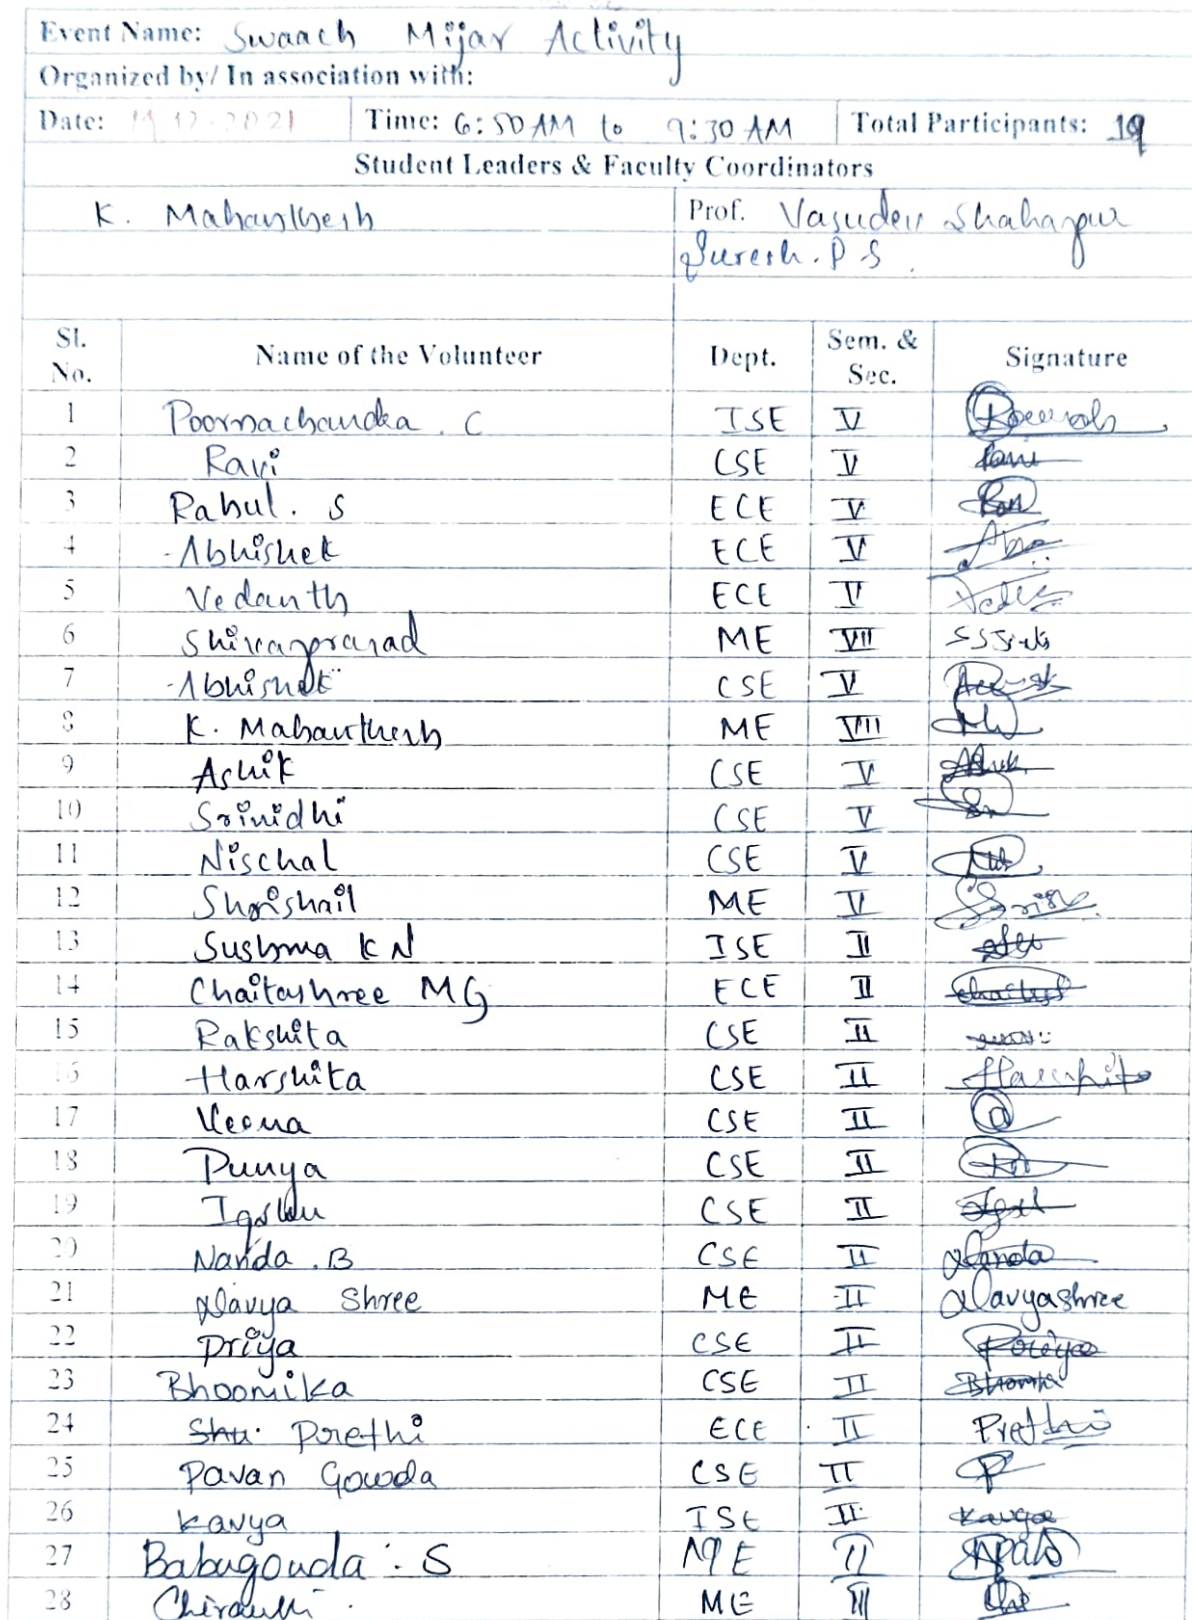 Event Name: Swaach Mijar Activity
Organized by/ In association with:
Date: 19 12-2021 Time: 6:50 AM to 9:30 AM Total Participants: 19
Student Leaders & Faculty Coordinators
K. Mahanthesh Prof. Vasudev Shahapur
Suresh. P S.
Sl. No. Name of the Volunteer Dept. Sem. & Sec. Signature
1 Poornachandra . C ISE V
2 Ravi CSE V Ravi
3 Rahul . S ECE V
4 Abhishek ECE V
5 Vedanth ECE V
6 Shivaprasad ME VII
7 Abhishek CSE V
8 K. Mahanthesh ME VII
9 Ashik CSE V Ashik
10 Srinidhi CSE V
11 Nischal CSE V
12 Shrishail ME V
13 Sushma K N ISE II
14 Chaitashree MG ECE II
15 Rakshita CSE II
16 Harshita CSE II Harshita
17 Veena CSE II
18 Punya CSE II
19 CSE II
20 Nanda . B CSE II Nanda
21 Navya Shree ME II Navyashree
22 Priya CSE II Priya
23 Bhoomika CSE II
24 Prethi ECE II Prethi
25 Pavan Gowda CSE II P
26 Kavya ISE II Kavya
27 Babugouda . S ME II
28 ME III